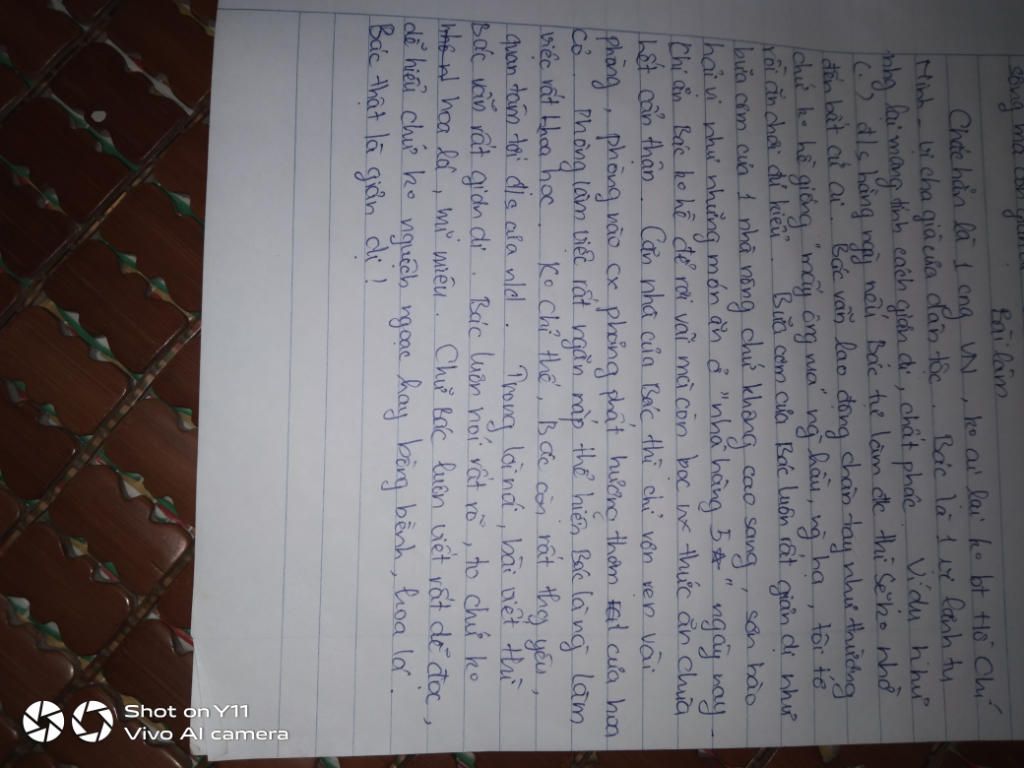 sống mà
Bài làm
Chắc hẳn là 1 cng VN, ko ai lại ko bt Hồ Chí
Minh - vị cha già của dân tộc. Bác là 1 vị lãnh tụ
nhg lại mang tính cách giản dị, chất phác. Ví dụ như
(:) đ/s hằng ngày nếu Bác tự làm đc thì sẽ ko nhờ
đến bất cứ ai. Bác vẫn lao động chân tay như thường
chứ ko hề giống "mấy ông mà" ng hầu, ng hạ, tối tớ
rồi ăn chơi đủ kiểu. Bữa cơm của Bác luôn rất giản dị như
bữa cơm của 1 nhà nông chứ không cao sang, sơn hào
hải vị như những món ăn ở "nhà hàng 5☆" ngày nay.
Khi ăn Bác ko hề để rơi vãi mà còn bọc lại thức ăn chừa
hết cẩn thận. Căn nhà của Bác thì chỉ vỏn vẹn vài
phòng, phòng nào cx phảng phất hương thơm của hoa
cỏ. Phòng làm việc rất ngăn nắp thể hiện Bác là ng làm
việc rất khoa học. Ko chỉ thế, Bác còn rất thg yêu,
quan tâm tới đ/s của n/d. Trong lời nói, bài viết thì
Bác vẫn rất giản dị. Bác luôn nói rất rõ, to chứ ko
hoa lá, mĩ miều. Chữ Bác luôn viết rất dễ đọc,
dễ hiểu chứ ko nguệch ngoạc hay bồng bềnh, hoa lá.
Bác thật là giản dị!
Shot on Y11
Vivo AI camera